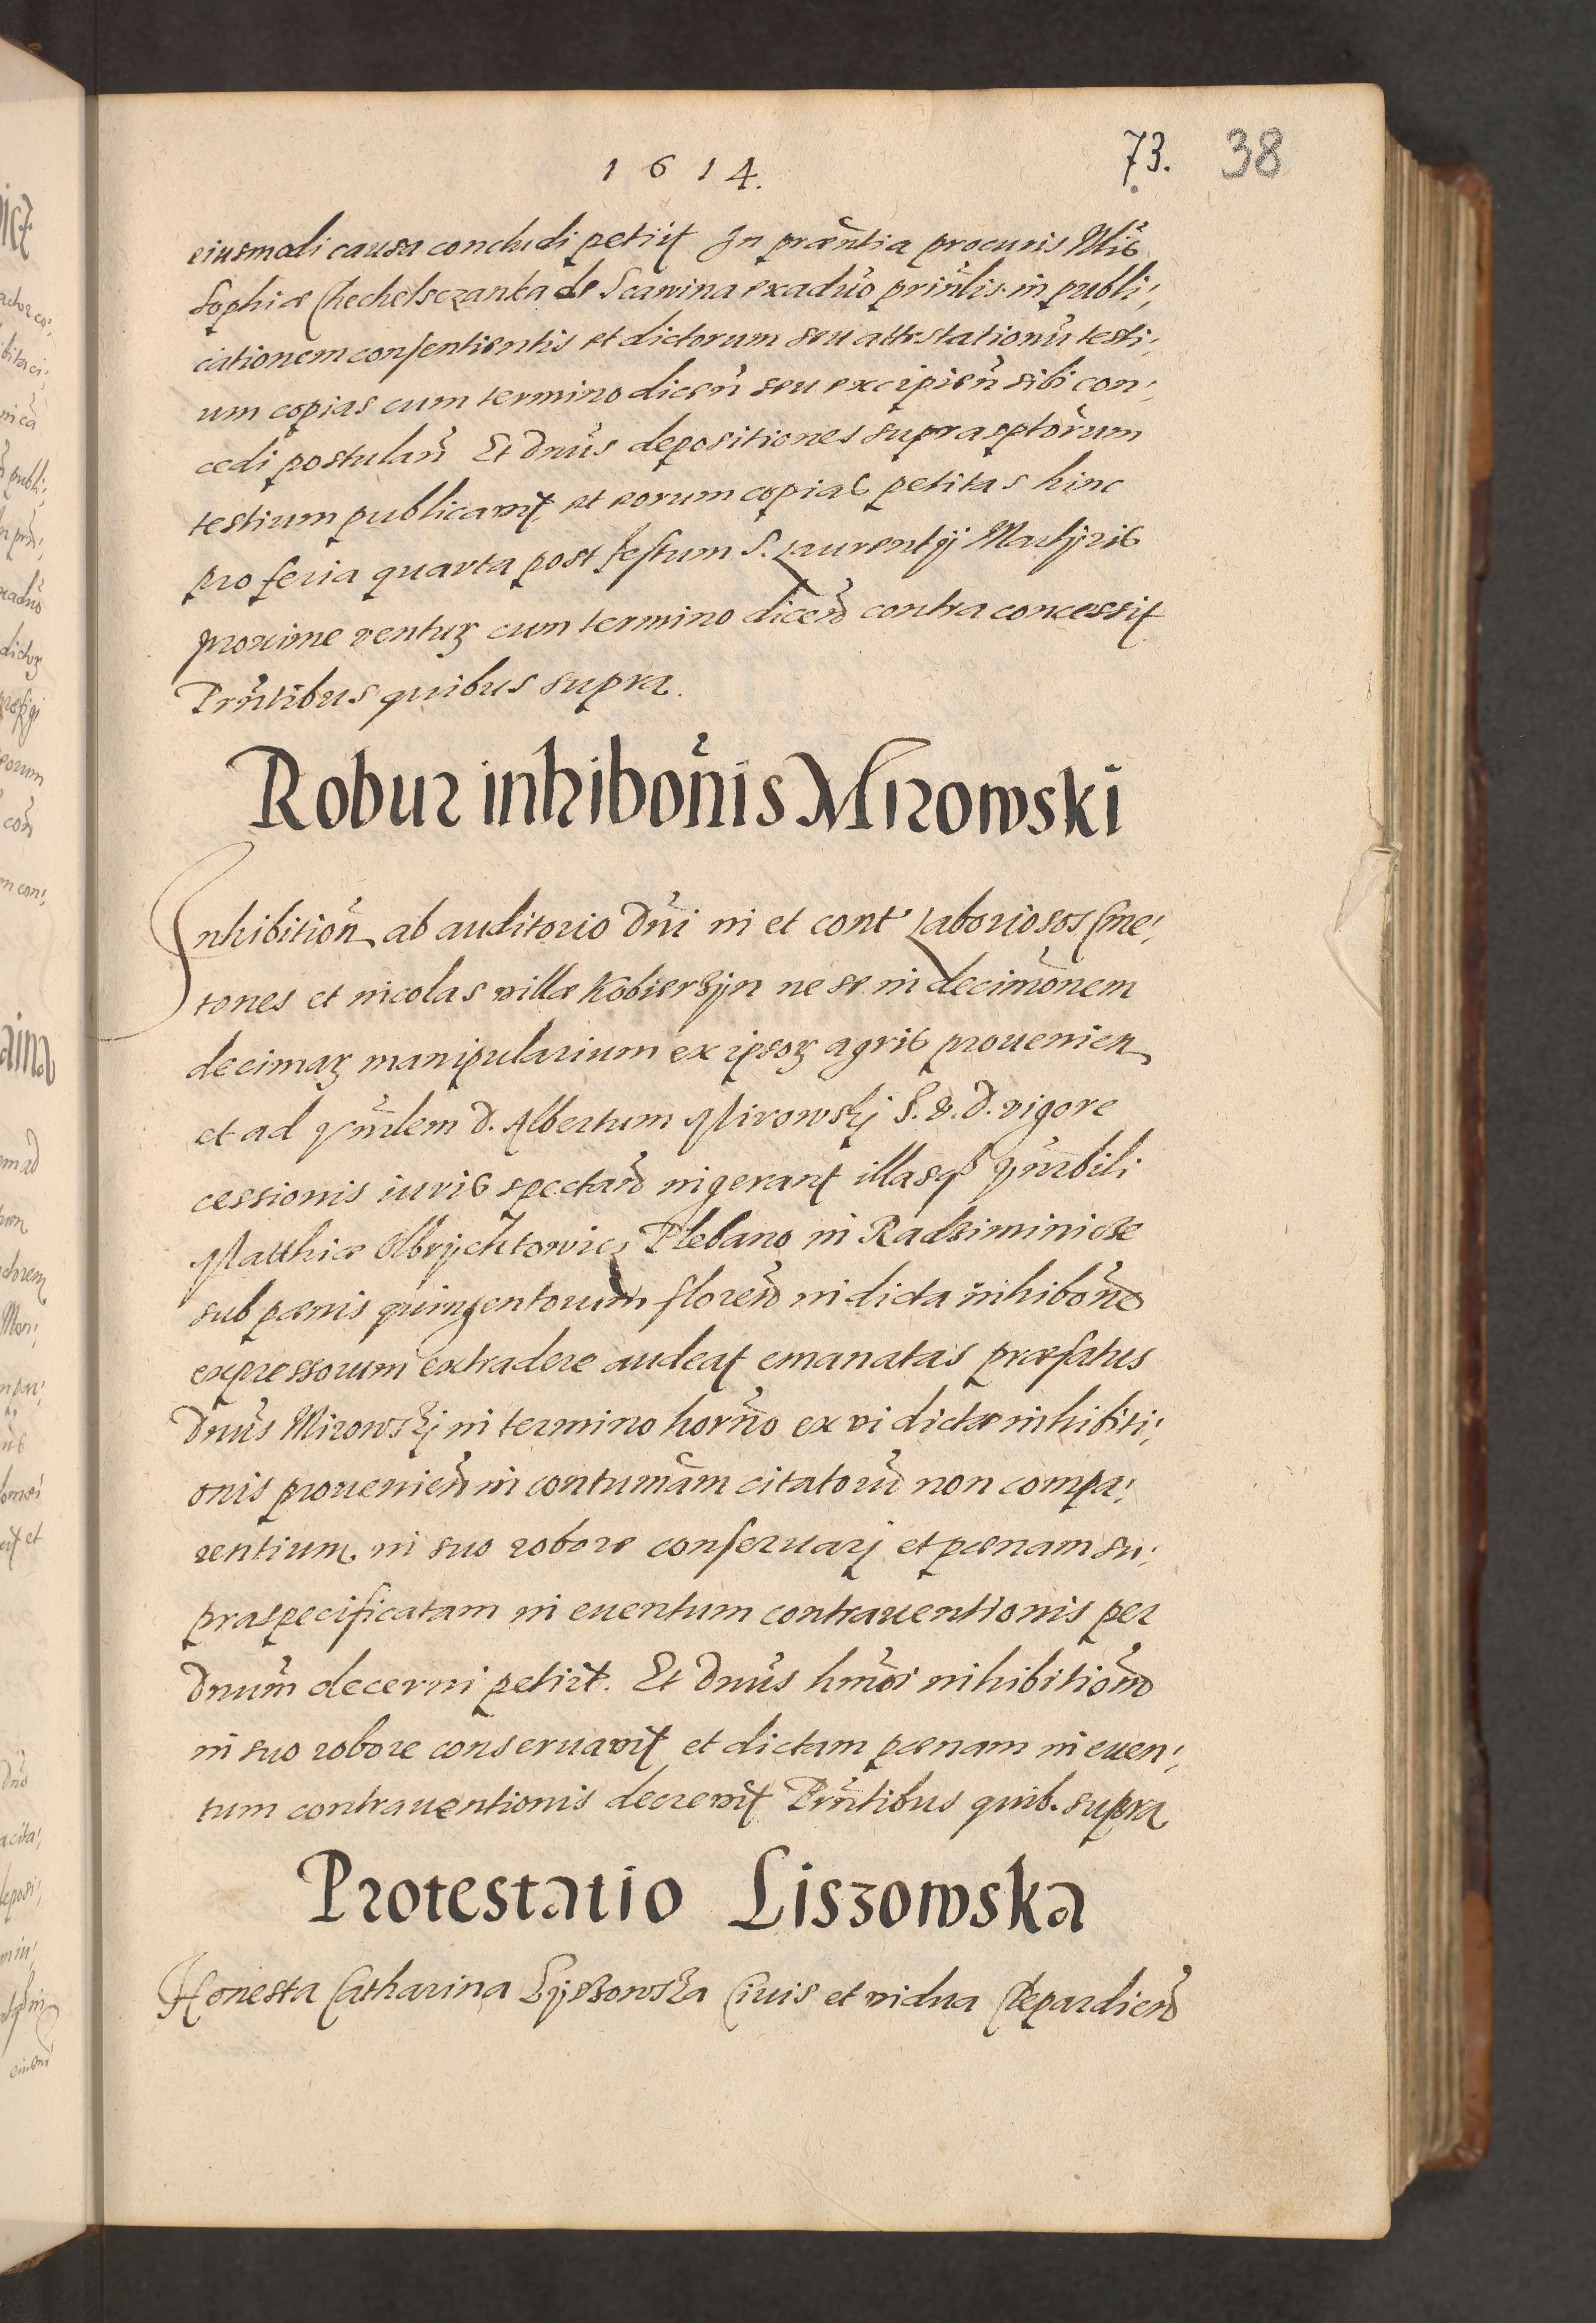 1614.
73. 38
eiusmodi causa concludi petiit In præntia procuris Mlis
Sophiæ Chechelsczanka de Scawina ex aduo prinlis in publi;
cationem consentientis et dictorum seu attestationũ testi;
um copias cum termino dicen seu excipien sibi con;
cedi postulan Et Dnus depositiones suprasptorum
testium publicavit et eorum copias petitas hinc
pro feria quarta post festum S. Laurentij Martijris
proxime ventur cum termino dicend contra concessit
Prntibus quibus supra.
Robur inhibonis Mirowski
Inhibition ab auditorio Dni in et cont Laboriosos Cme;
tones et incolas villæ Kobierzijn ne se in decimonem
decimar manipularium ex ipsor agris prouenien
et ad Vnrlem D. Albertum Mirowskj S. R. D. vigore
cessionis iuris spectand ingerant illasq Vnrbili
Matthiæ Olbrijchtowicz Plebano in Radziminice
sub pænis quingentorum florend in dicta inhibone
expressorum extradere audeat emanatas præfatus
Dnus Mirowskj in termino horno ex vi dictæ inhibiti;
onis prouenien in contumam citatorũ non compa;
rentium in suo robore conseruarj et pænam su;
praspecificatam in euentum contrauentionis per
Dnum decerni petiit. Et Dnus hmoi inhibitiond
in suo robore conseruavit et dictam pænam in euen;
tum contrauentionis decrevit Prntibus quib. supra
Protestatio Liszowska
Honesta Catharina Lijszowska Ciuis et vidua Clepardiend